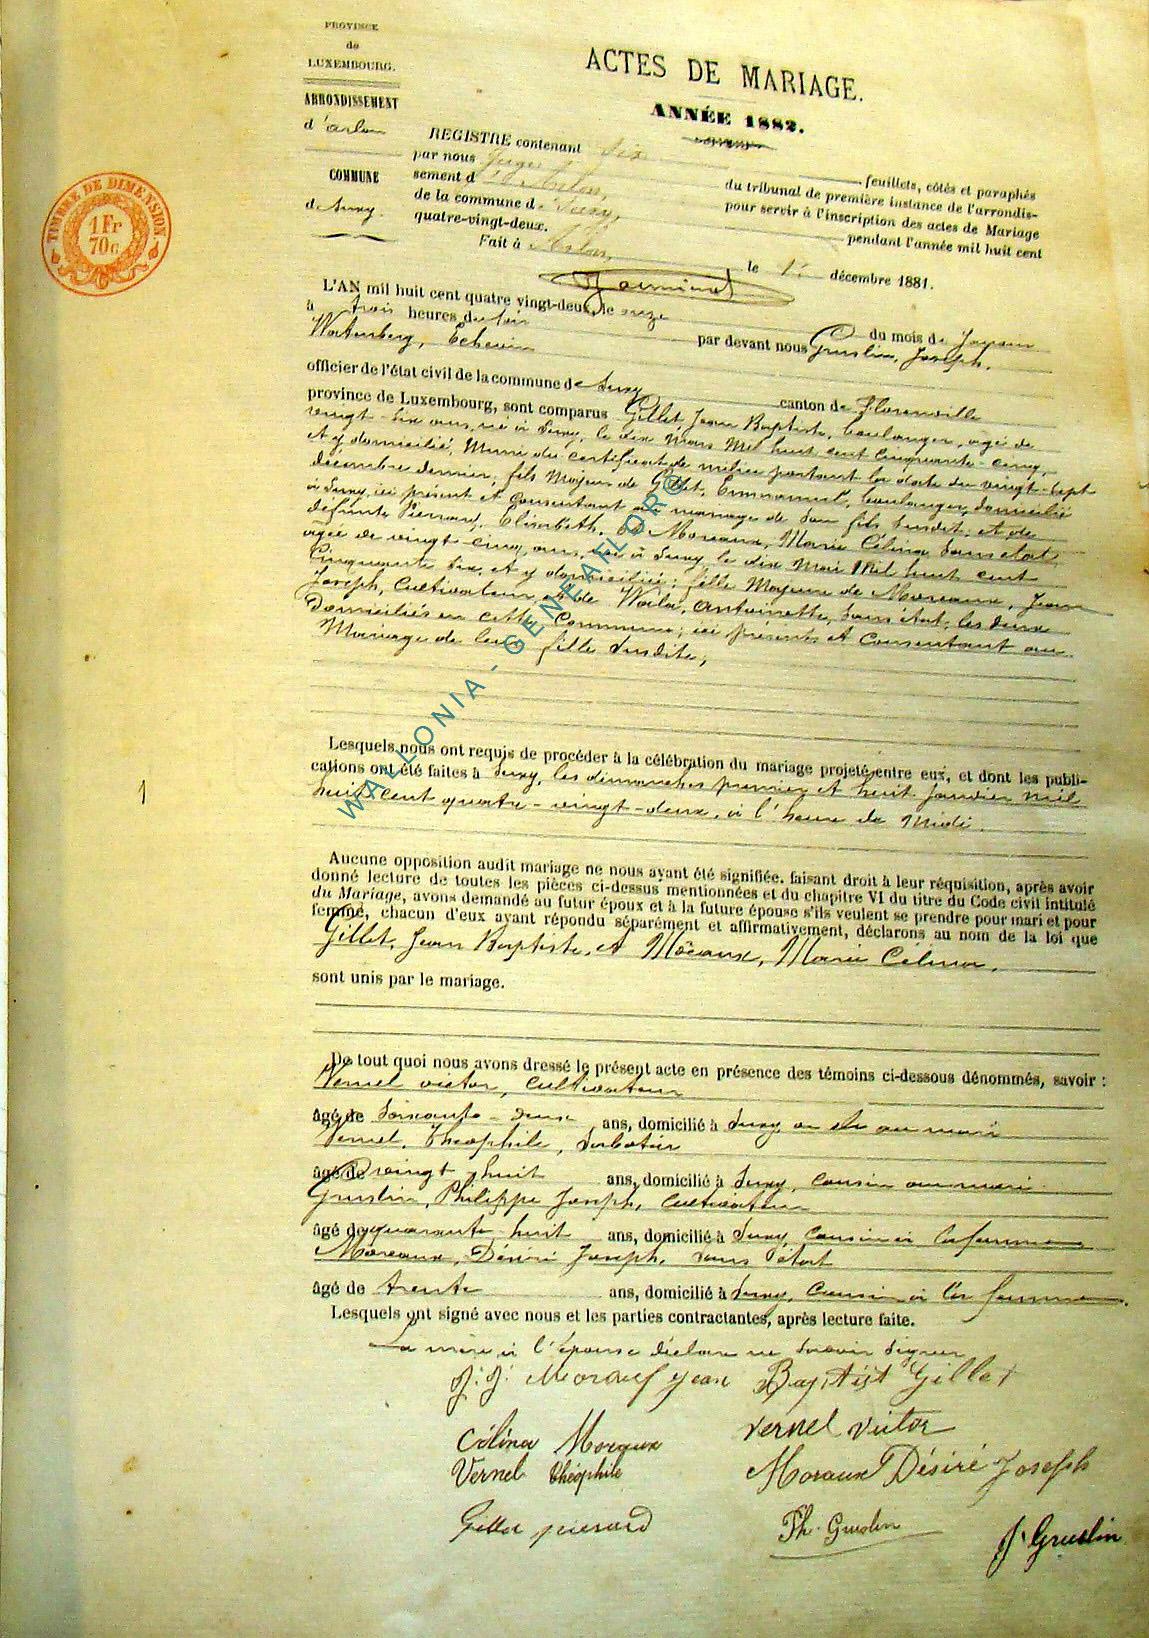 PROVINCE
de
LUXEMBOURG.
ARRONDISSEMENT
d'arlon
COMMUNE
d. Suxy.
TIMBRE DE DIMENSION
1 Fr
70c
ACTES DE MARIAGE.
ANNÉE 1882.
REGISTRE contenant six feuillets, côtés et paraphés
par nous Juge du tribunal de première instance de l'arrondis-
sement d'Arlon, pour servir à l'inscription des actes de Mariage
de la commune d. Suxy, pendant l'année mil huit cent
quatre-vingt-deux.
Fait à Arlon, le décembre 1881.
L'AN mil huit cent quatre vingt-deux, le onze du mois de Janvier
à trois heures du soir par devant nous Gruslin, Joseph,
Echevin
officier de l'état civil de la commune de Suxy canton de Florenville
province de Luxembourg, sont comparus Gillet, Jean Baptiste, boulanger, agé de
vingt-six ans, né à Suxy, le dix Mars Mil huit cent cinquante-cinq,
et y domicilié, Muni du certificat de milice portant la date du vingt-sept
décembre dernier; fils Majeur de Gillet, Emmanuel, boulanger, domicilié
à Suxy, ici présent et Consentant au mariage de Son fils Susdit, et de
défunte Pierrard, Elisabeth. Et Moreaux, Marie Célina, Sans état,
agée de vingt-cinq ans, née à Suxy, le dix Mai Mil huit cent
Cinquante Six, et y domiciliée; fille Majeure de Moreaux, Jean
Joseph, Cultivateur, et de Antoinette, Sans état, les deux
Domiciliés en cette Commune; ici présents et Consentant au
Mariage de leur fille Susdite;
Lesquels nous ont requis de procéder à la célébration du mariage projeté entre eux, et dont les publi-
cations ont été faites à Suxy, les dimanches premier et huit Janvier mil
huit cent quatre-vingt-deux, à l'heure de Midi.
1
Aucune opposition audit mariage ne nous ayant été signifiée, faisant droit à leur réquisition, après avoir
donné lecture de toutes les pièces ci-dessus mentionnées et du chapitre VI du titre du Code civil intitulé
du Mariage, avons demandé au futur époux et à la future épouse s'ils veulent se prendre pour mari et pour
femme, chacun d'eux ayant répondu séparément et affirmativement, déclarons au nom de la loi que
Gillet, Jean Baptiste, et Moreaux, Marie Célina,
sont unis par le mariage.
De tout quoi nous avons dressé le présent acte en présence des témoins ci-dessous dénommés, savoir :
Vernel victor, cultivateur
âgé de Soixante-deux ans, domicilié à Suxy, au mari
Vernel, Théophile, Sabotier
âgé de vingt huit ans, domicilié à Suxy, cousin au mari
Gruslin, Philippe Joseph, Cultivateur
âgé de quarante huit ans, domicilié à Suxy, Cousin à la femme
Moreaux, Désiré Joseph, Sans état
âgé de trente ans, domicilié à Suxy, Cousin à la femme
Lesquels ont signé avec nous et les parties contractantes, après lecture faite.
La mère à l'épouse déclare ne Savoir Signer
J. J. Moraux Jean Baptist Gillet
Célina Moraux Vernel Victor
Vernel théophile Moraux Désiré Joseph
Ph. Gruslin J. Gruslin
WALLONIA - GENEAFLOR ©